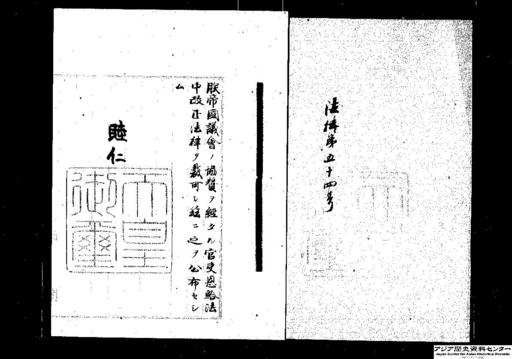 法律第五十四号
朕帝國議會ノ協賛ヲ經タル官吏恩給法
中改正法律ヲ裁可シ茲ニ之ヲ公布セシ
ム
睦仁
天皇
御璽
アジア歴史資料センター
Japan Center for Asian Historical Records